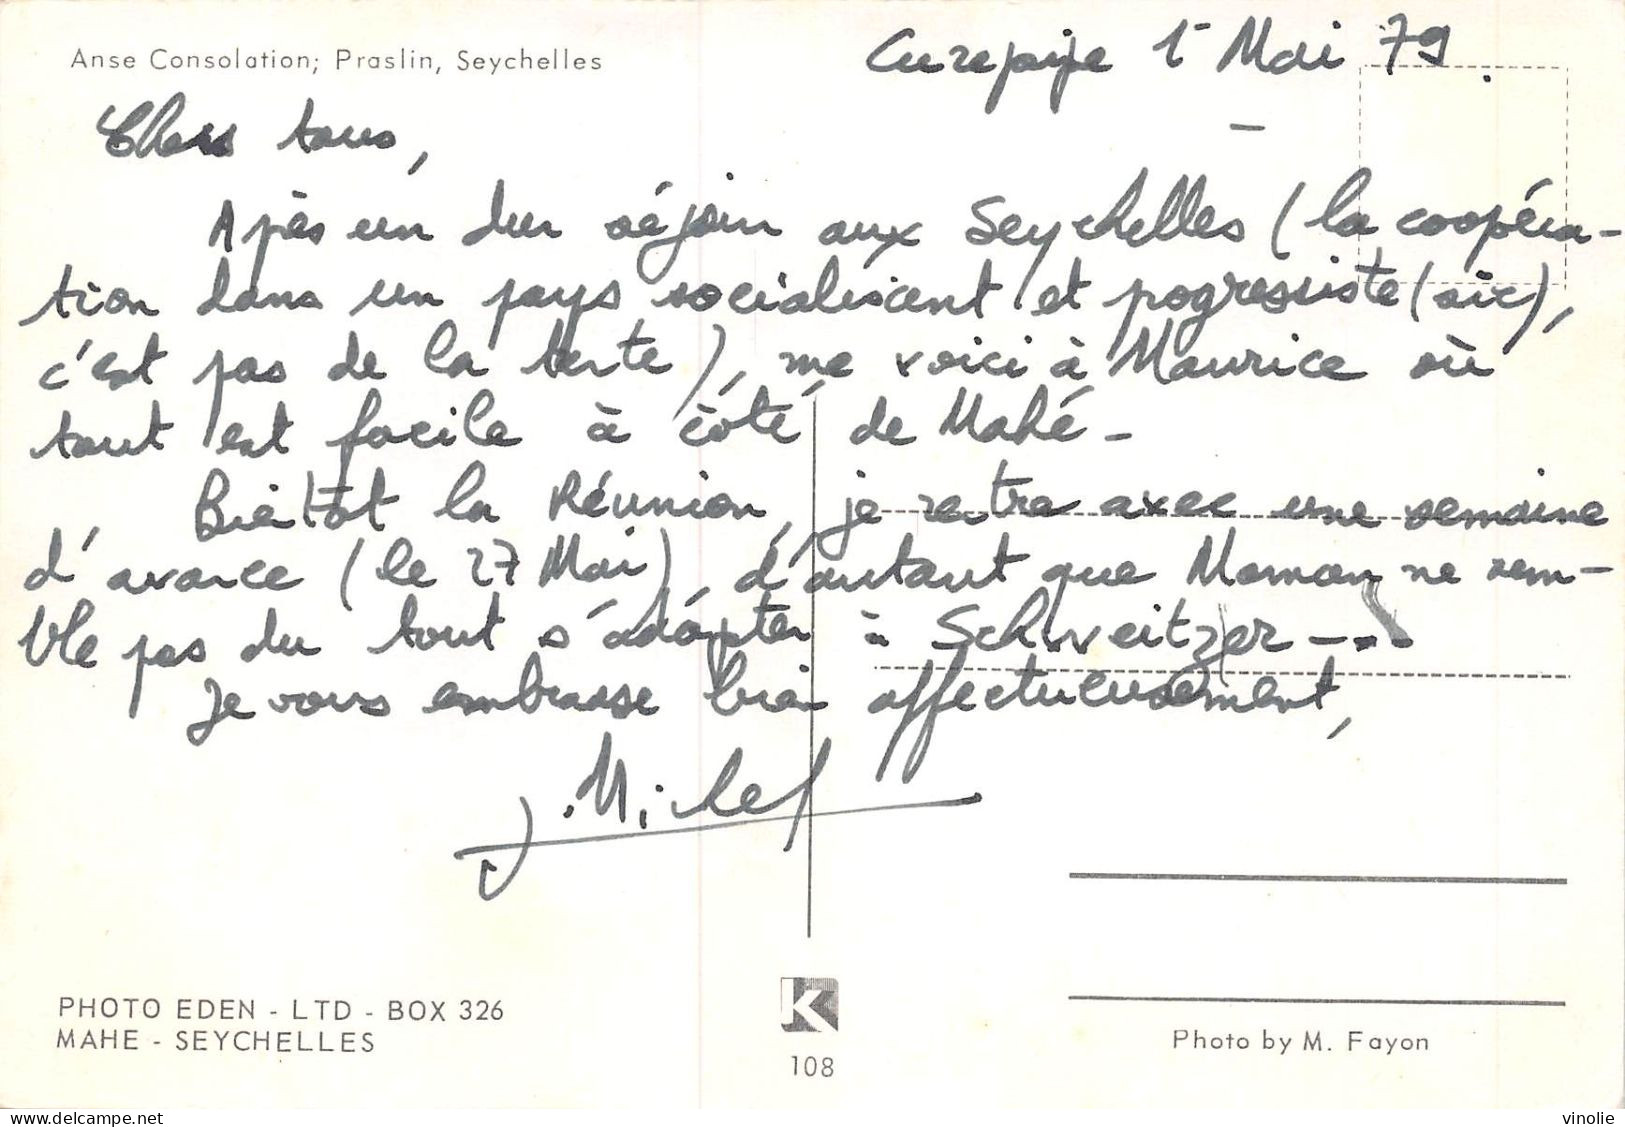 Anse Consolation; Praslin, Seychelles
Curepipe 1er Mai 79.
Chers tous,
Après un dur séjour aux Seychelles (la coopéra-
tion dans un pays socialisant et progressiste (sic),
c'est pas de la tarte), me voici à Maurice où
tout est facile à côté de Mahé -
Bientôt la Réunion, je rentre avec une semaine
d'avance (le 27 Mai), d'autant que Maman ne sem-
ble pas du tout s'adapter à Schweitzer ---
Je vous embrasse bien affectueusement,
J. Michel
PHOTO EDEN - LTD - BOX 326
MAHE - SEYCHELLES
K
108
Photo by M. Fayon
vinolie